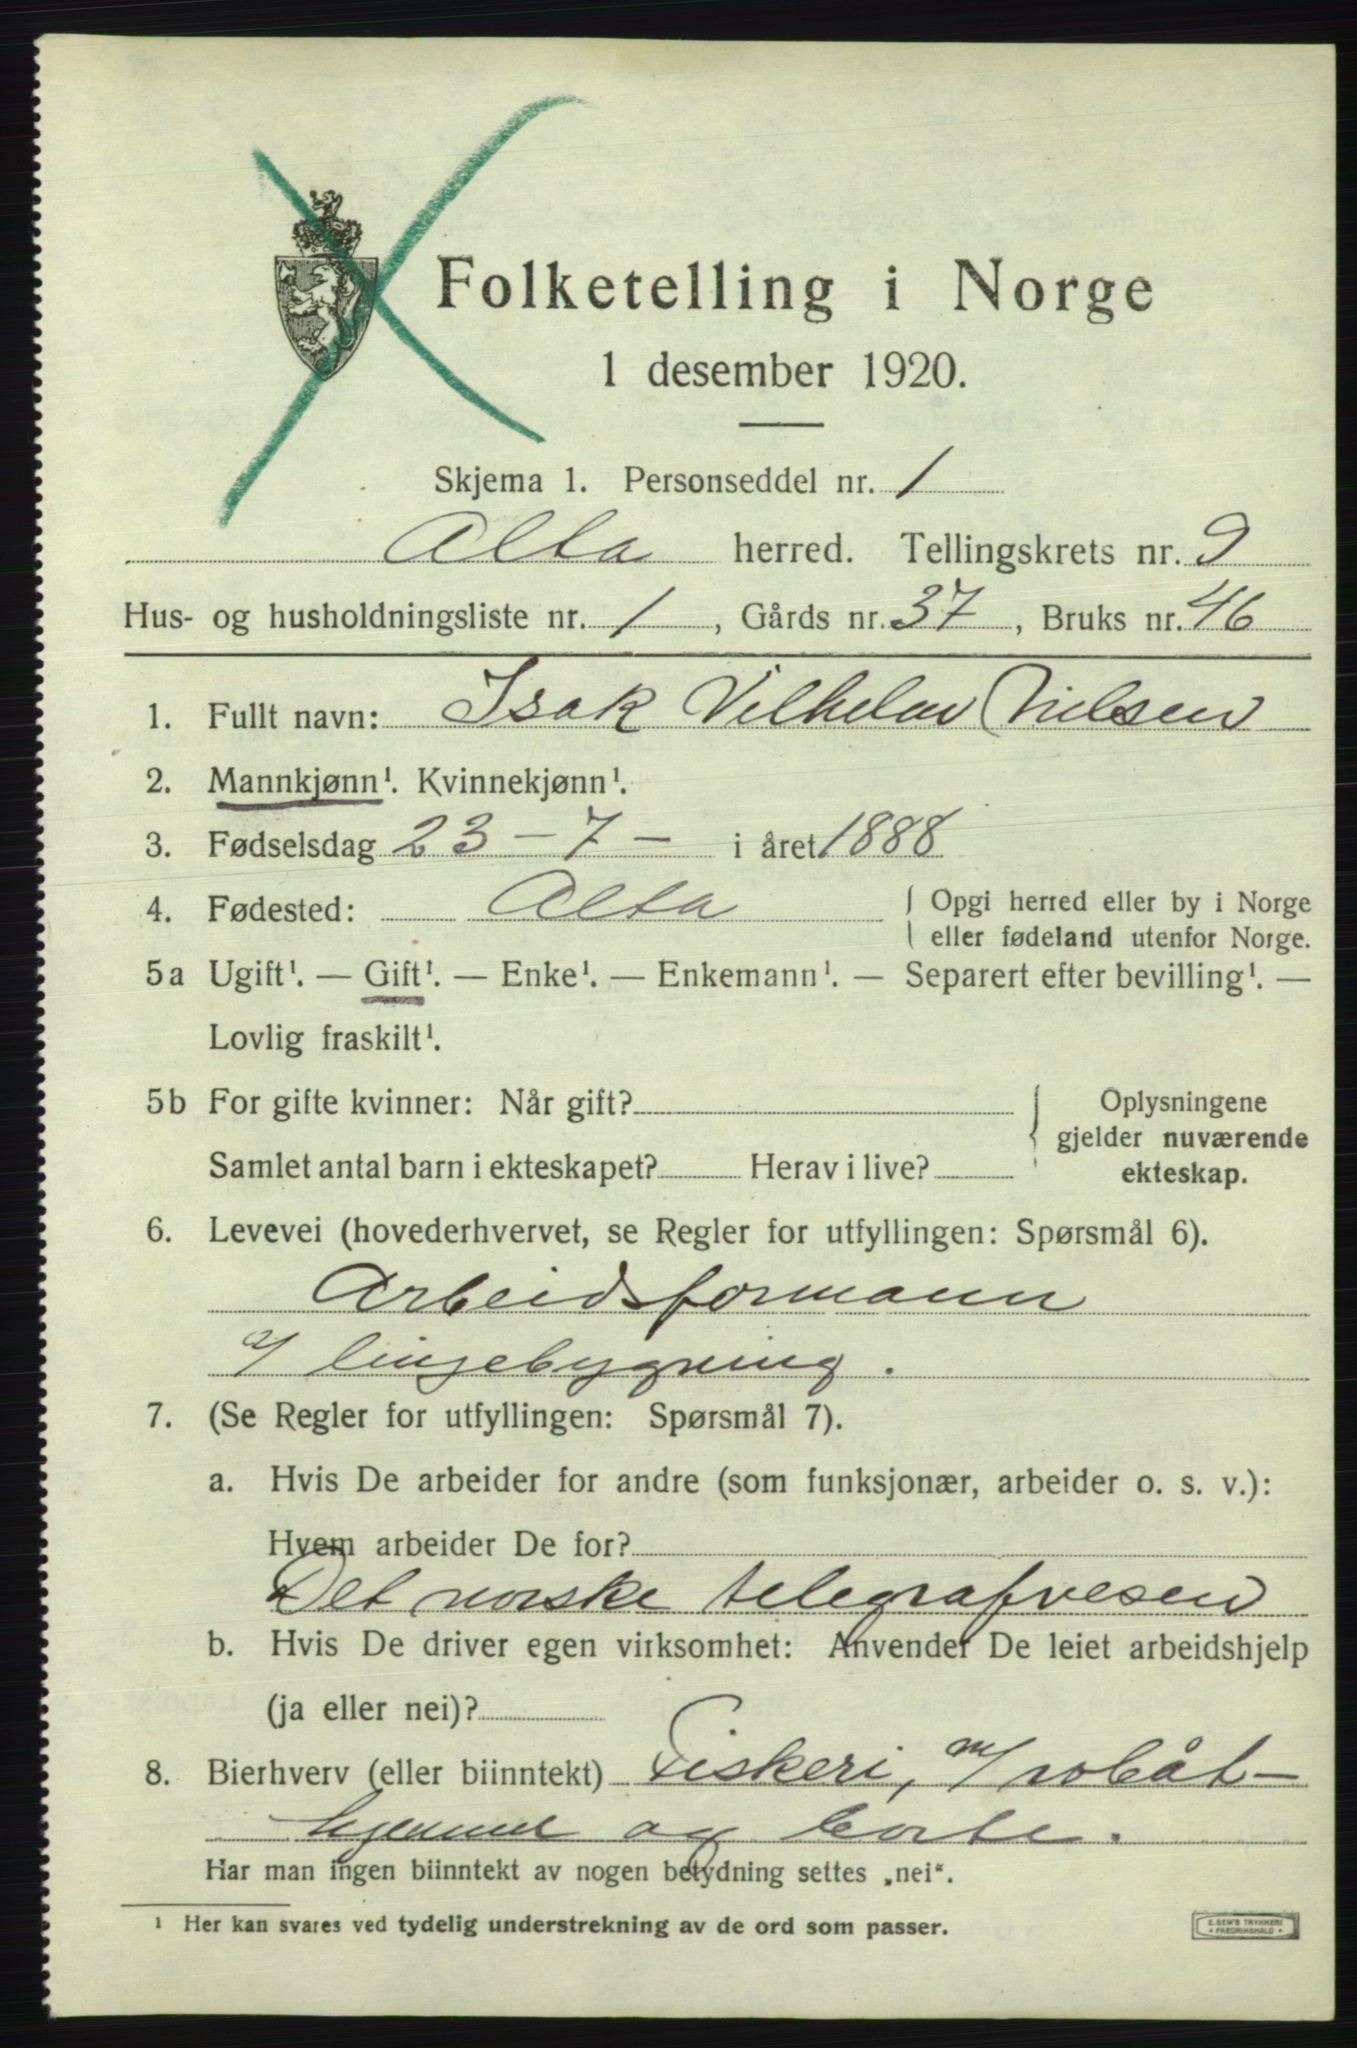 Folketelling i Norge
1 desember 1920.
Skjema 1. Personseddel nr. 1
Alta herred. Tellingskrets nr. 9
Hus- og husholdningsliste nr. 1, Gårds nr. 37, Bruks nr. 46
1. Fullt navn: Isak Vilhelm Nielsen
2. Mannkjønn¹. Kvinnekjønn¹.
3. Fødselsdag 23 – 7 – i året 1888
4. Fødested: Alta { Opgi herred eller by i Norge
eller fødeland utenfor Norge.
5a Ugift¹. — Gift¹. — Enke¹. — Enkemann¹. — Separert efter bevilling¹. —
Lovlig fraskilt¹.
5b For gifte kvinner: Når gift? { Oplysningene
gjelder nuværende
Samlet antal barn i ekteskapet? Herav i live? ekteskap.
6. Levevei (hovederhvervet, se Regler for utfyllingen: Spørsmål 6).
Arbeidsformann
v/ linjebygning.
7. (Se Regler for utfyllingen: Spørsmål 7).
a. Hvis De arbeider for andre (som funksjonær, arbeider o. s. v.):
Hvem arbeider De for?
Det norske telegrafvesen
b. Hvis De driver egen virksomhet: Anvender De leiet arbeidshjelp
(ja eller nei)?
8. Bierhverv (eller biinntekt) Fiskeri, m/ robåt –
hjemme og borte.
Har man ingen biinntekt av nogen betydning settes „nei“.
¹ Her kan svares ved tydelig understrekning av de ord som passer.
E. SEM'S TRYKKERI
FREDRIKSHALD